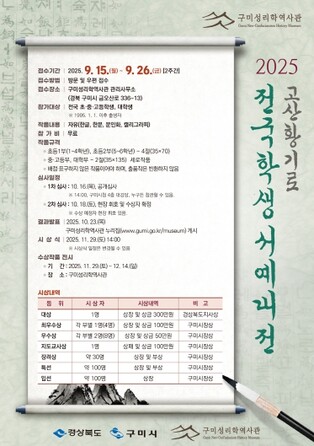 구미성리학역사관
2025
고산황기로
전국학생서예대전
접수기간 : 2025. 9. 15.(월) ~ 9. 26.(금) [2주간]
접수방법 : 방문 및 우편 접수
접수장소 : 구미성리학역사관 관리사무소
(경북 구미시 금오산로 336-13)
참가대상 : 전국 초·중·고등학생, 대학생
※ 1995. 1. 1. 이후 출생자
작품내용 : 자유(한글, 한문, 문인화, 캘리그라피)
참 가 비 : 무료
작품규격
· 초등1부(1~4학년), 초등2부(5~6학년) - 4절(35×70)
· 중·고등부, 대학부 - 2절(35×135) 세로작품
· 배접 요구하지 않은 작품이어야 하며, 출품작은 반환하지 않음
심사일정
· 1차 심사 : 10. 16.(목), 공개심사
※ 14:00, 구미시청 4층 대강당, 누구든 참관할 수 있음
· 2차 심사 : 10. 18.(토), 현장 휘호 및 수상자 확정
※ 수상 예정자 현장 휘호 있음
결과발표 : 2025. 10. 23.(목)
구미성리학역사관 누리집(www.gumi.go.kr/museum) 게시
시 상 식 : 2025. 11. 29.(토) 14:00
※ 시상식 일정은 변경될 수 있음
수상작품 전시
· 기 간 : 2025. 11. 29.(토) ~ 12. 14.(일)
· 장 소 : 구미성리학역사관
시상내역
등 위 시 상 자 시상내역 비 고
대상 1명 상장 및 상금 300만원 경상북도지사상
최우수상 각 부별 1명(4명) 상장 및 상금 100만원 구미시장상
우수상 각 부별 2명(8명) 상장 및 상금 50만원 구미시장상
지도교사상 1명 상패 및 상금 100만원 구미시장상
장려상 약 30명 상장 및 부상 구미시장상
특선 약 100명 상장 및 부상 구미시장상
입선 약 100명 상장 구미시장상
경상북도 구미시 구미성리학역사관